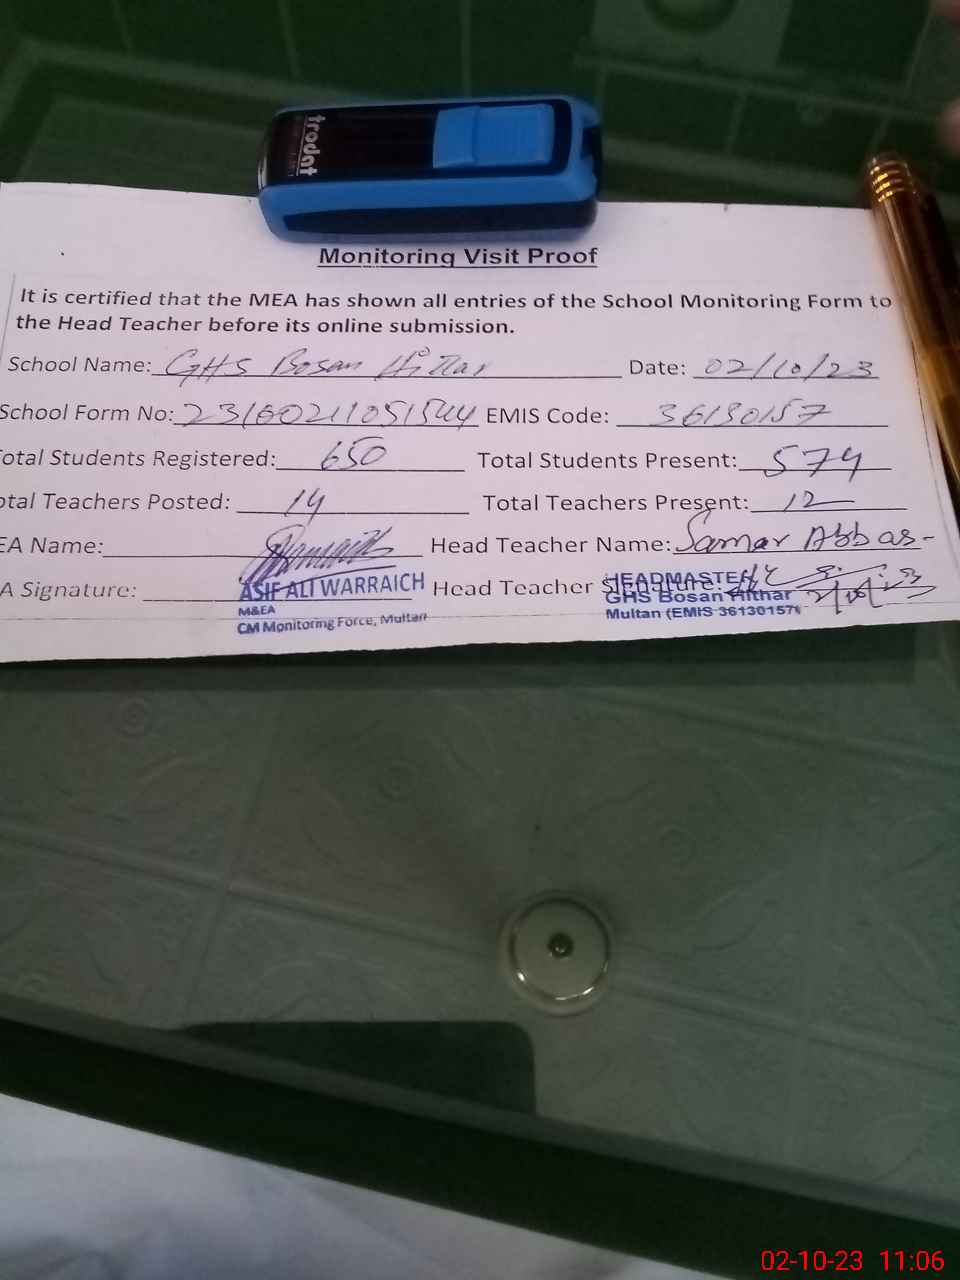 trodat
Monitoring Visit Proof
It is certified that the MEA has shown all entries of the School Monitoring Form to
the Head Teacher before its online submission.
School Name: GHS Bosan Hithar Date: 02/10/23
School Form No: 23160211051544 EMIS Code: 36130157
otal Students Registered: 650 Total Students Present: 574
otal Teachers Posted: 14 Total Teachers Present: 12
EA Name: Head Teacher Name: Samar Abbas
A Signature: Head Teacher Signature:
ASIF ALI WARRAICH
M&EA
CM Monitoring Force, Multan
HEADMASTER
GHS Bosan Hithar
Multan (EMIS 36130157)
02-10-23 11:06